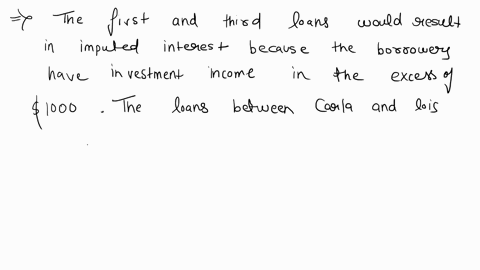 ⇒ The first and third loans would result
in imputed interest because the borrowery
have investment income in the excess of
$1000 . The loans between Carla and lois